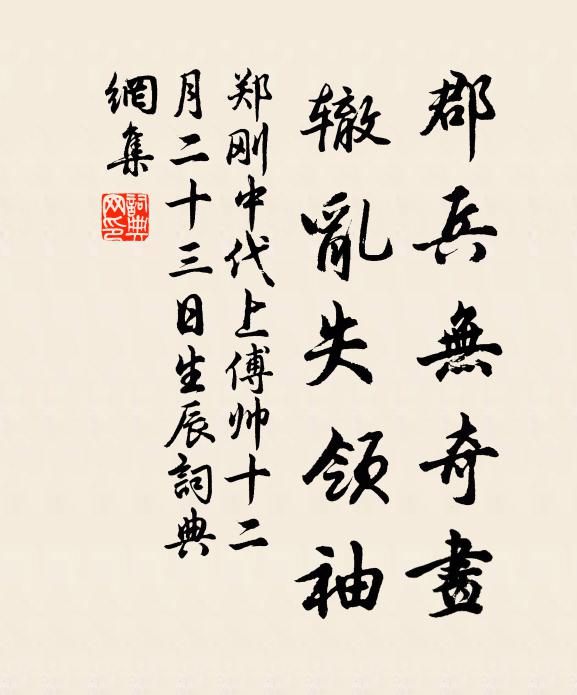 郡兵無奇畫
辙亂失领袖
郑刚中代上傅帅十二
月二十三日生辰詞典
網集
詞典网印